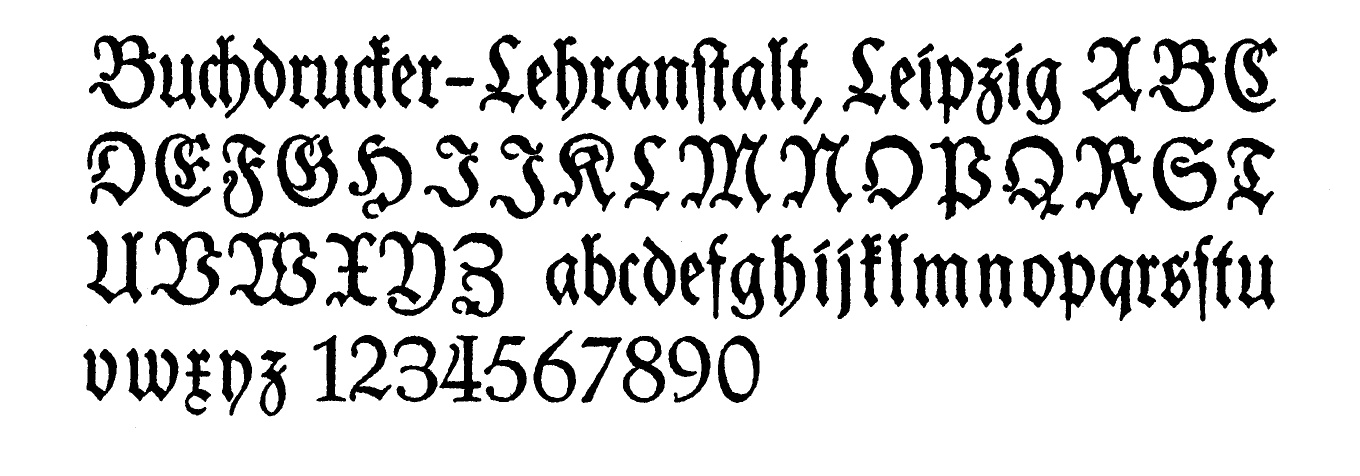 Buchdrucker-Lehranſtalt, Leipzig ABC
DEFGHIJKLMNOPQRST
UVWXYZ abcdefghijklmnopqrsſtu
vwxyz 1234567890